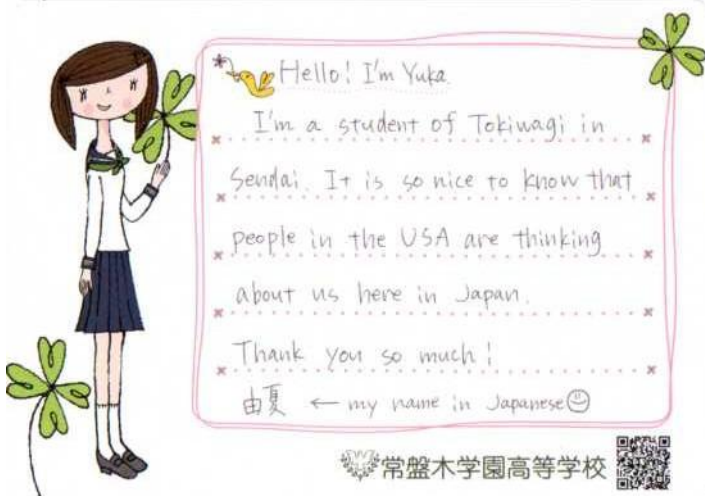 Hello! I'm Yuka
I'm a student of Tokiwagi in
Sendai. It is so nice to know that
people in the USA are thinking
about us here in Japan.
Thank you so much!
由夏 ← my name in Japanese
常盤木学園高等学校